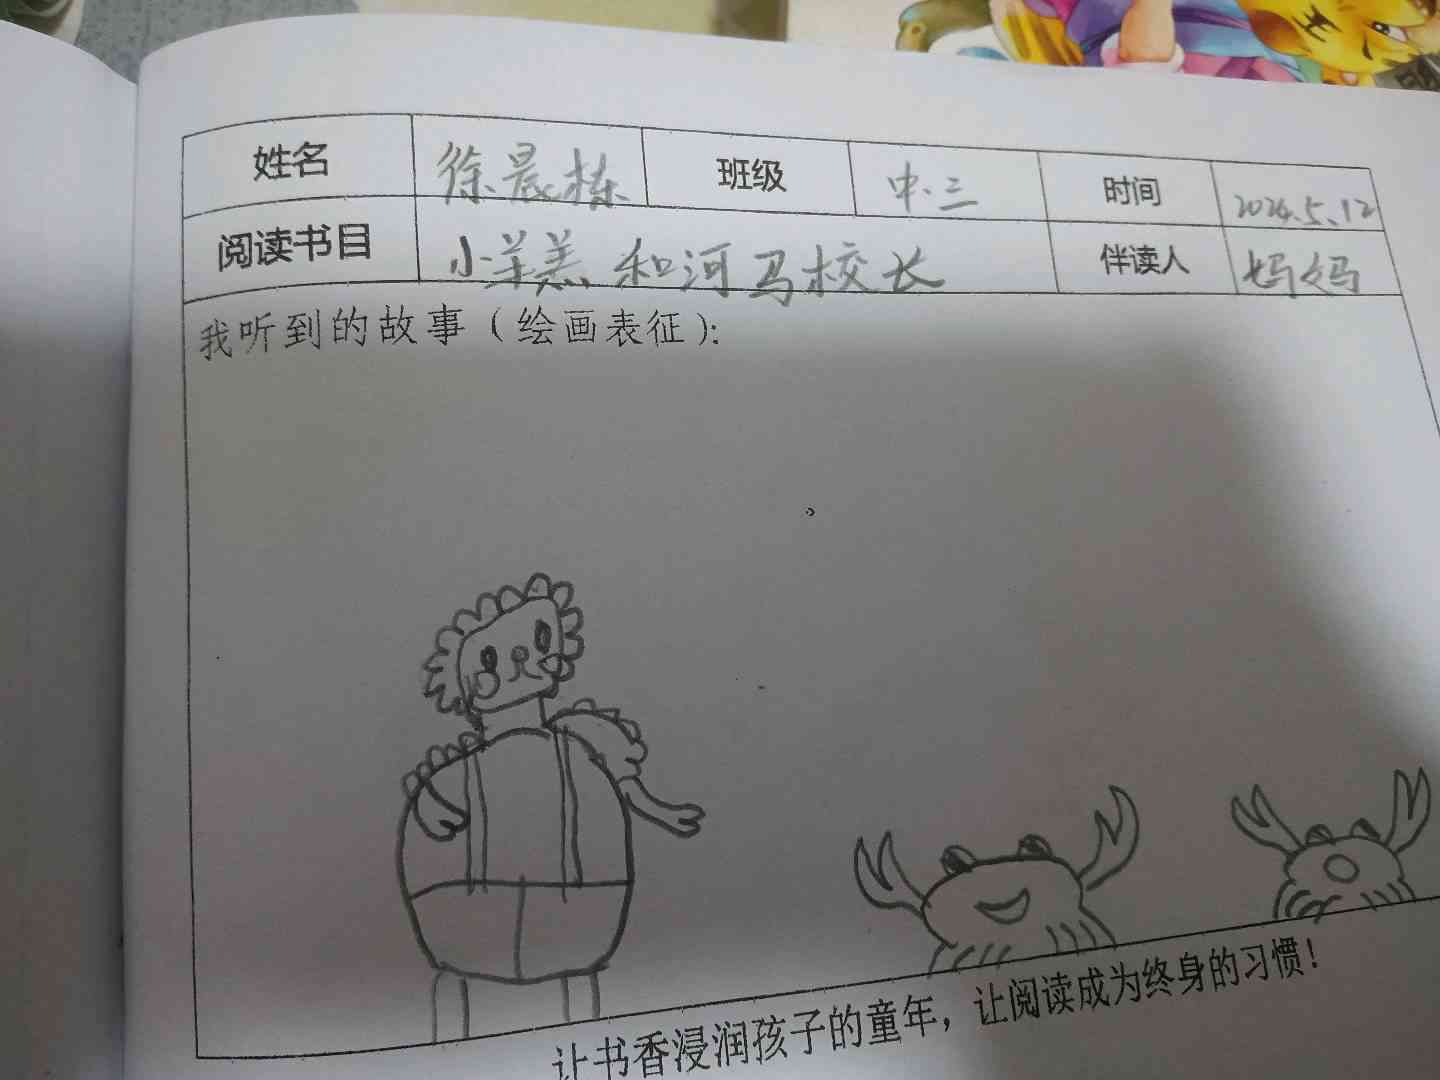 姓名 徐晨栋 班级 中.三 时间 2024.5.12
阅读书目 小羊羔和河马校长 伴读人 妈妈
我听到的故事（绘画表征）:
让书香浸润孩子的童年，让阅读成为终身的习惯！